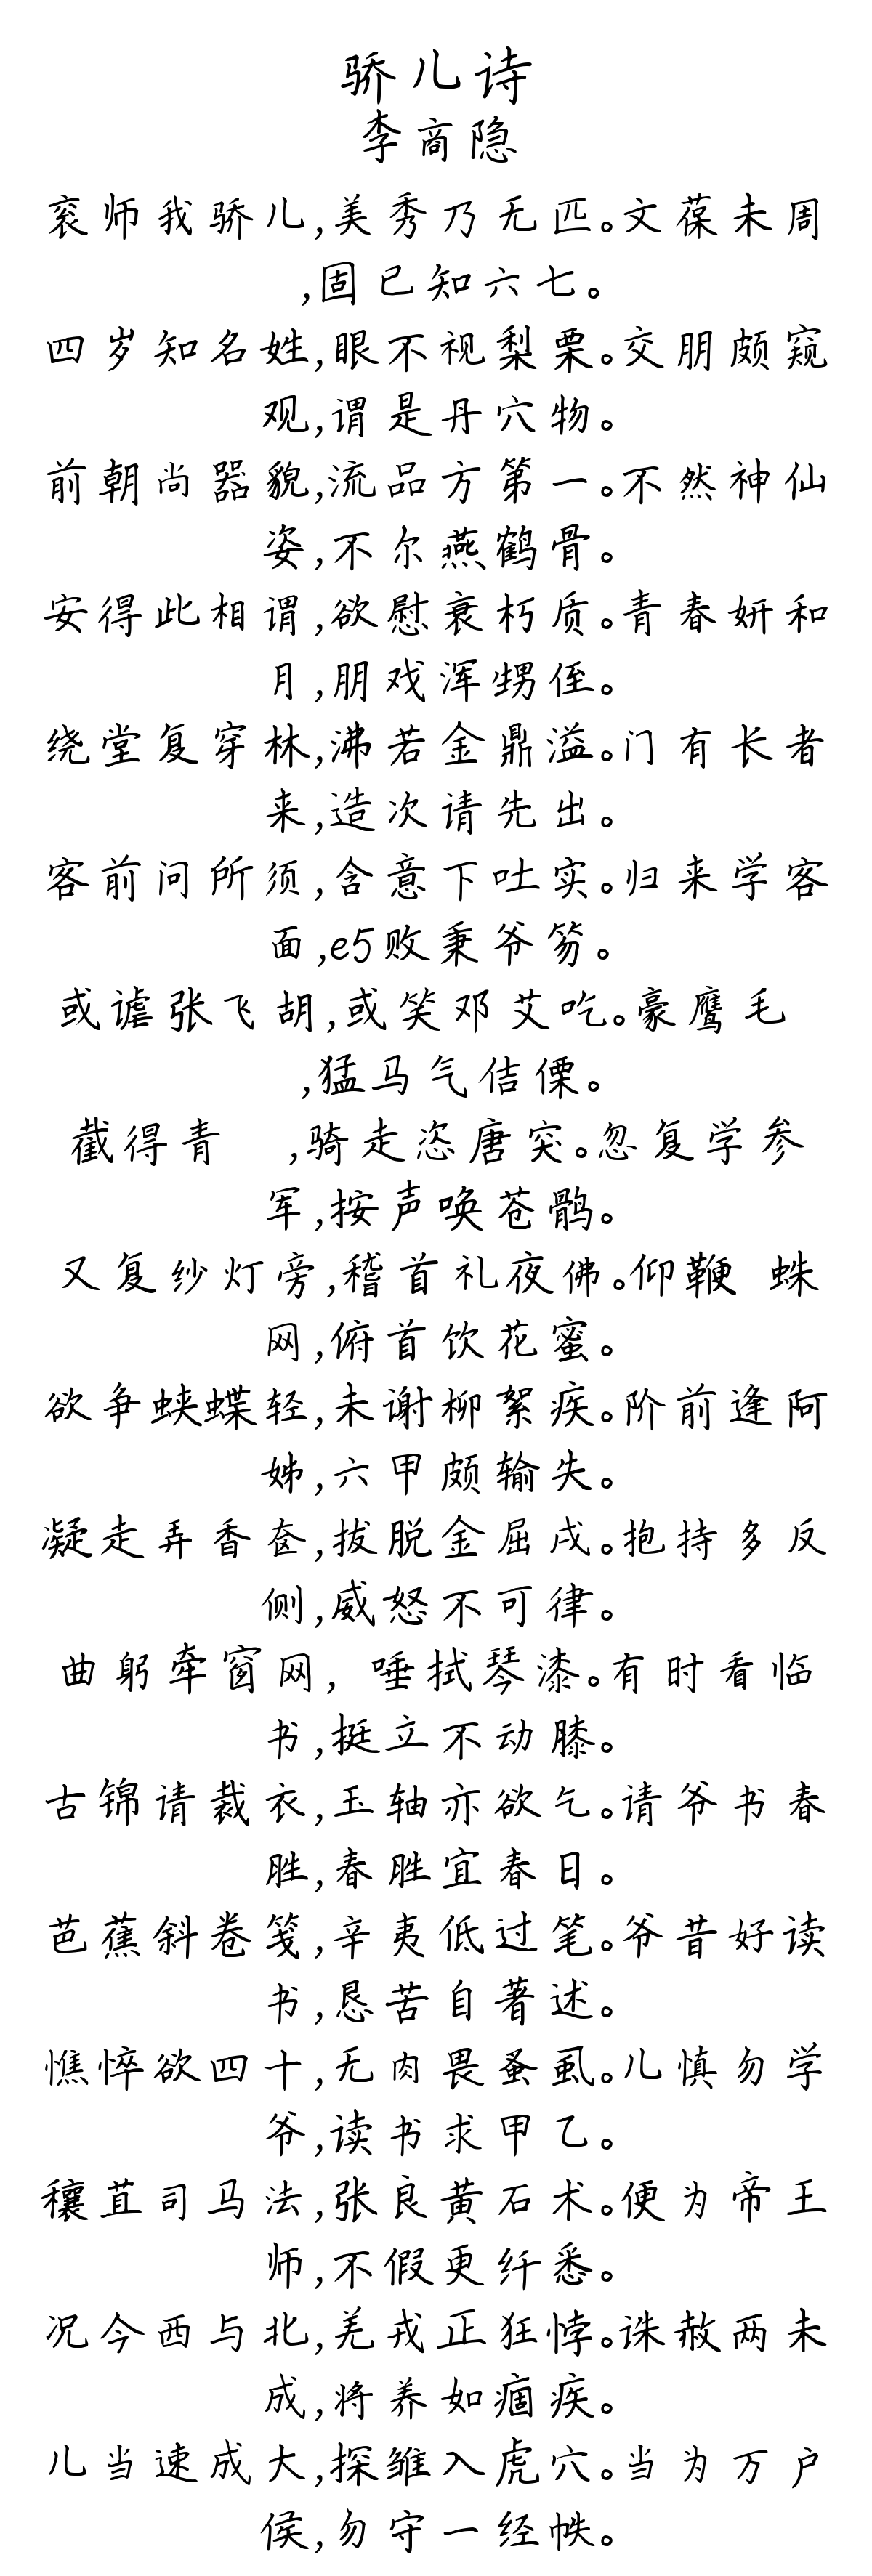 骄儿诗
李商隐
衮师我骄儿,美秀乃无匹。文葆未周
,固已知六七。
四岁知名姓,眼不视梨栗。交朋颇窥
观,谓是丹穴物。
前朝尚器貌,流品方第一。不然神仙
姿,不尔燕鹤骨。
安得此相谓,欲慰衰朽质。青春妍和
月,朋戏浑甥侄。
绕堂复穿林,沸若金鼎溢。门有长者
来,造次请先出。
客前问所须,含意下吐实。归来学客
面,e5败秉爷笏。
或谑张飞胡,或笑邓艾吃。豪鹰毛
,猛马气佶傈。
截得青 ,骑走恣唐突。忽复学参
军,按声唤苍鹘。
又复纱灯旁,稽首礼夜佛。仰鞭 蛛
网,俯首饮花蜜。
欲争蛱蝶轻,未谢柳絮疾。阶前逢阿
姊,六甲颇输失。
凝走弄香奁,拔脱金屈戌。抱持多反
侧,威怒不可律。
曲躬牵窗网, 唾拭琴漆。有时看临
书,挺立不动膝。
古锦请裁衣,玉轴亦欲乞。请爷书春
胜,春胜宜春日。
芭蕉斜卷笺,辛夷低过笔。爷昔好读
书,恳苦自著述。
憔悴欲四十,无肉畏蚤虱。儿慎勿学
爷,读书求甲乙。
穰苴司马法,张良黄石术。便为帝王
师,不假更纤悉。
况今西与北,羌戎正狂悖。诛赦两未
成,将养如痼疾。
儿当速成大,探雏入虎穴。当为万户
侯,勿守一经帙。